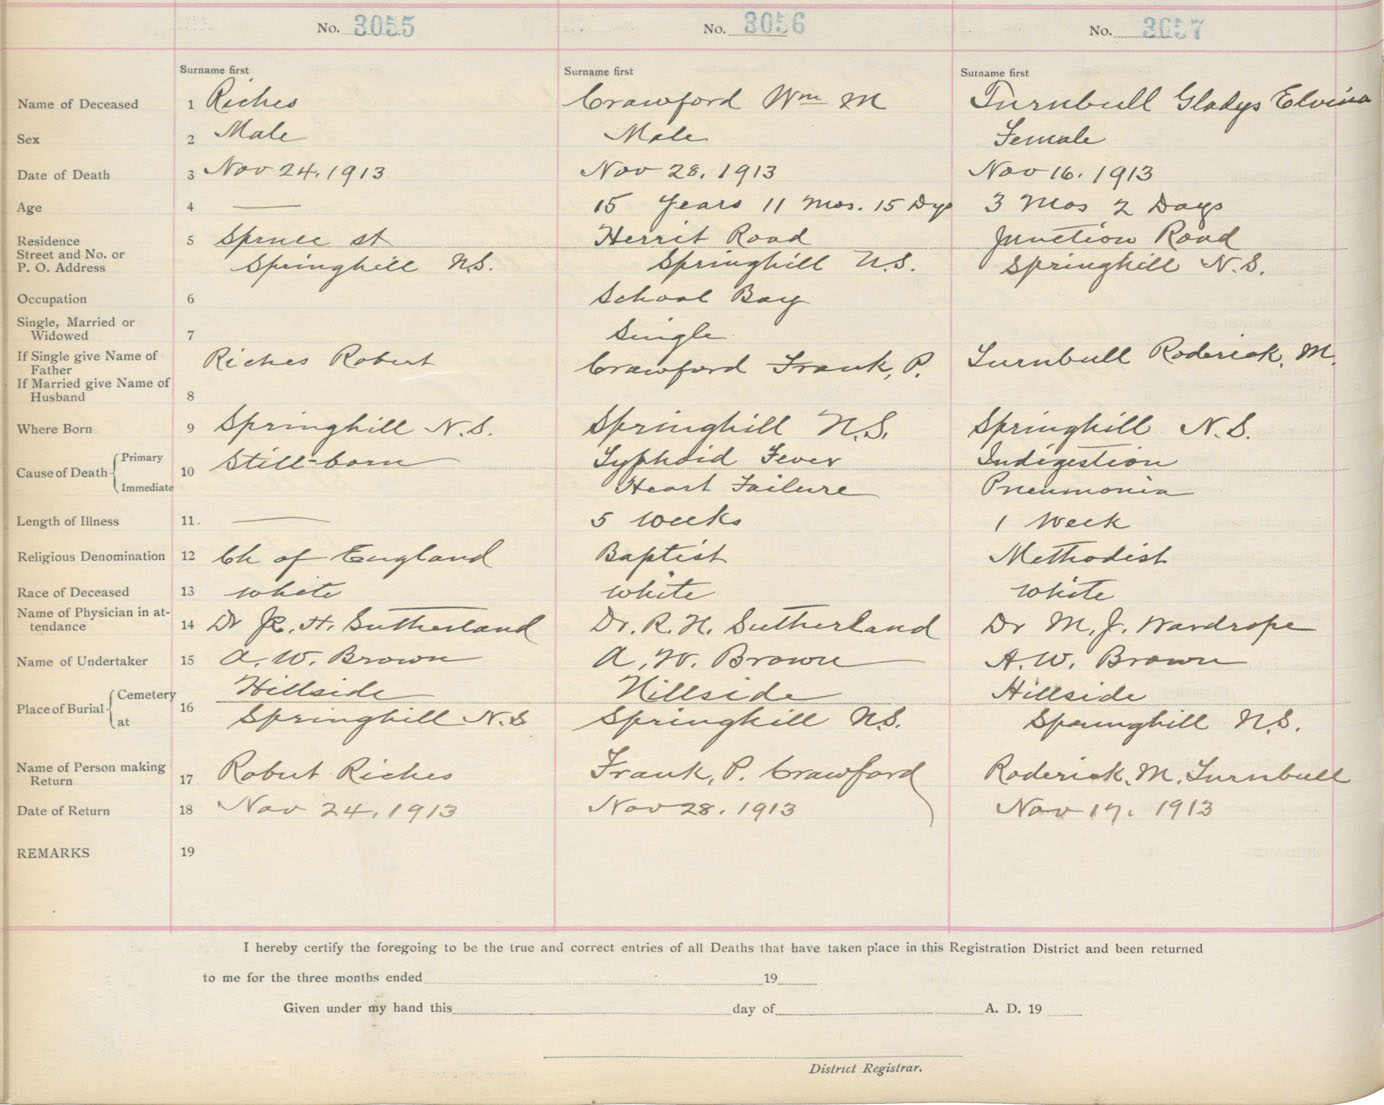 No. 3055 No. 3056 No. 3057
Surname first Surname first Surname first
Name of Deceased 1 Riches Crawford Wm M Turnbull Gladys Elvina
Sex 2 Male Male Female
Date of Death 3 Nov 24, 1913 Nov 28, 1913 Nov 16. 1913
Age 4 — 15 Years 11 Mos. 15 Dys 3 Mos 2 Days
Residence 5 Spruce st Herrit Road Junction Road
Street and No. or
P. O. Address Springhill N.S. Springhill N.S. Springhill N.S.
Occupation 6 School Boy
Single, Married or
Widowed 7 Single
If Single give Name of
Father Riches Robert Crawford Frank, P. Turnbull Roderick. M.
If Married give Name of
Husband 8
Where Born 9 Springhill N.S. Springhill N.S. Springhill N.S.
Cause of Death Primary 10 Still-born Typhoid Fever Indigestion
Immediate Heart Failure Pneumonia
Length of Illness 11. — 5 weeks 1 Week
Religious Denomination 12 Ch of England Baptist Methodist
Race of Deceased 13 white white white
Name of Physician in at-
tendance 14 Dr R. H. Sutherland Dr. R. H. Sutherland Dr M. J. Wardrope
Name of Undertaker 15 A. W. Brown A. W. Brown A. W. Brown
Place of Burial Cemetery 16 Hillside Hillside Hillside
at Springhill N.S Springhill N.S. Springhill N.S.
Name of Person making
Return 17 Robert Riches Frank, P. Crawford Roderick. M. Turnbull
Date of Return 18 Nov 24, 1913 Nov 28. 1913 Nov 17. 1913
REMARKS 19
I hereby certify the foregoing to be the true and correct entries of all Deaths that have taken place in this Registration District and been returned
to me for the three months ended 19
Given under my hand this day of A. D. 19
District Registrar.